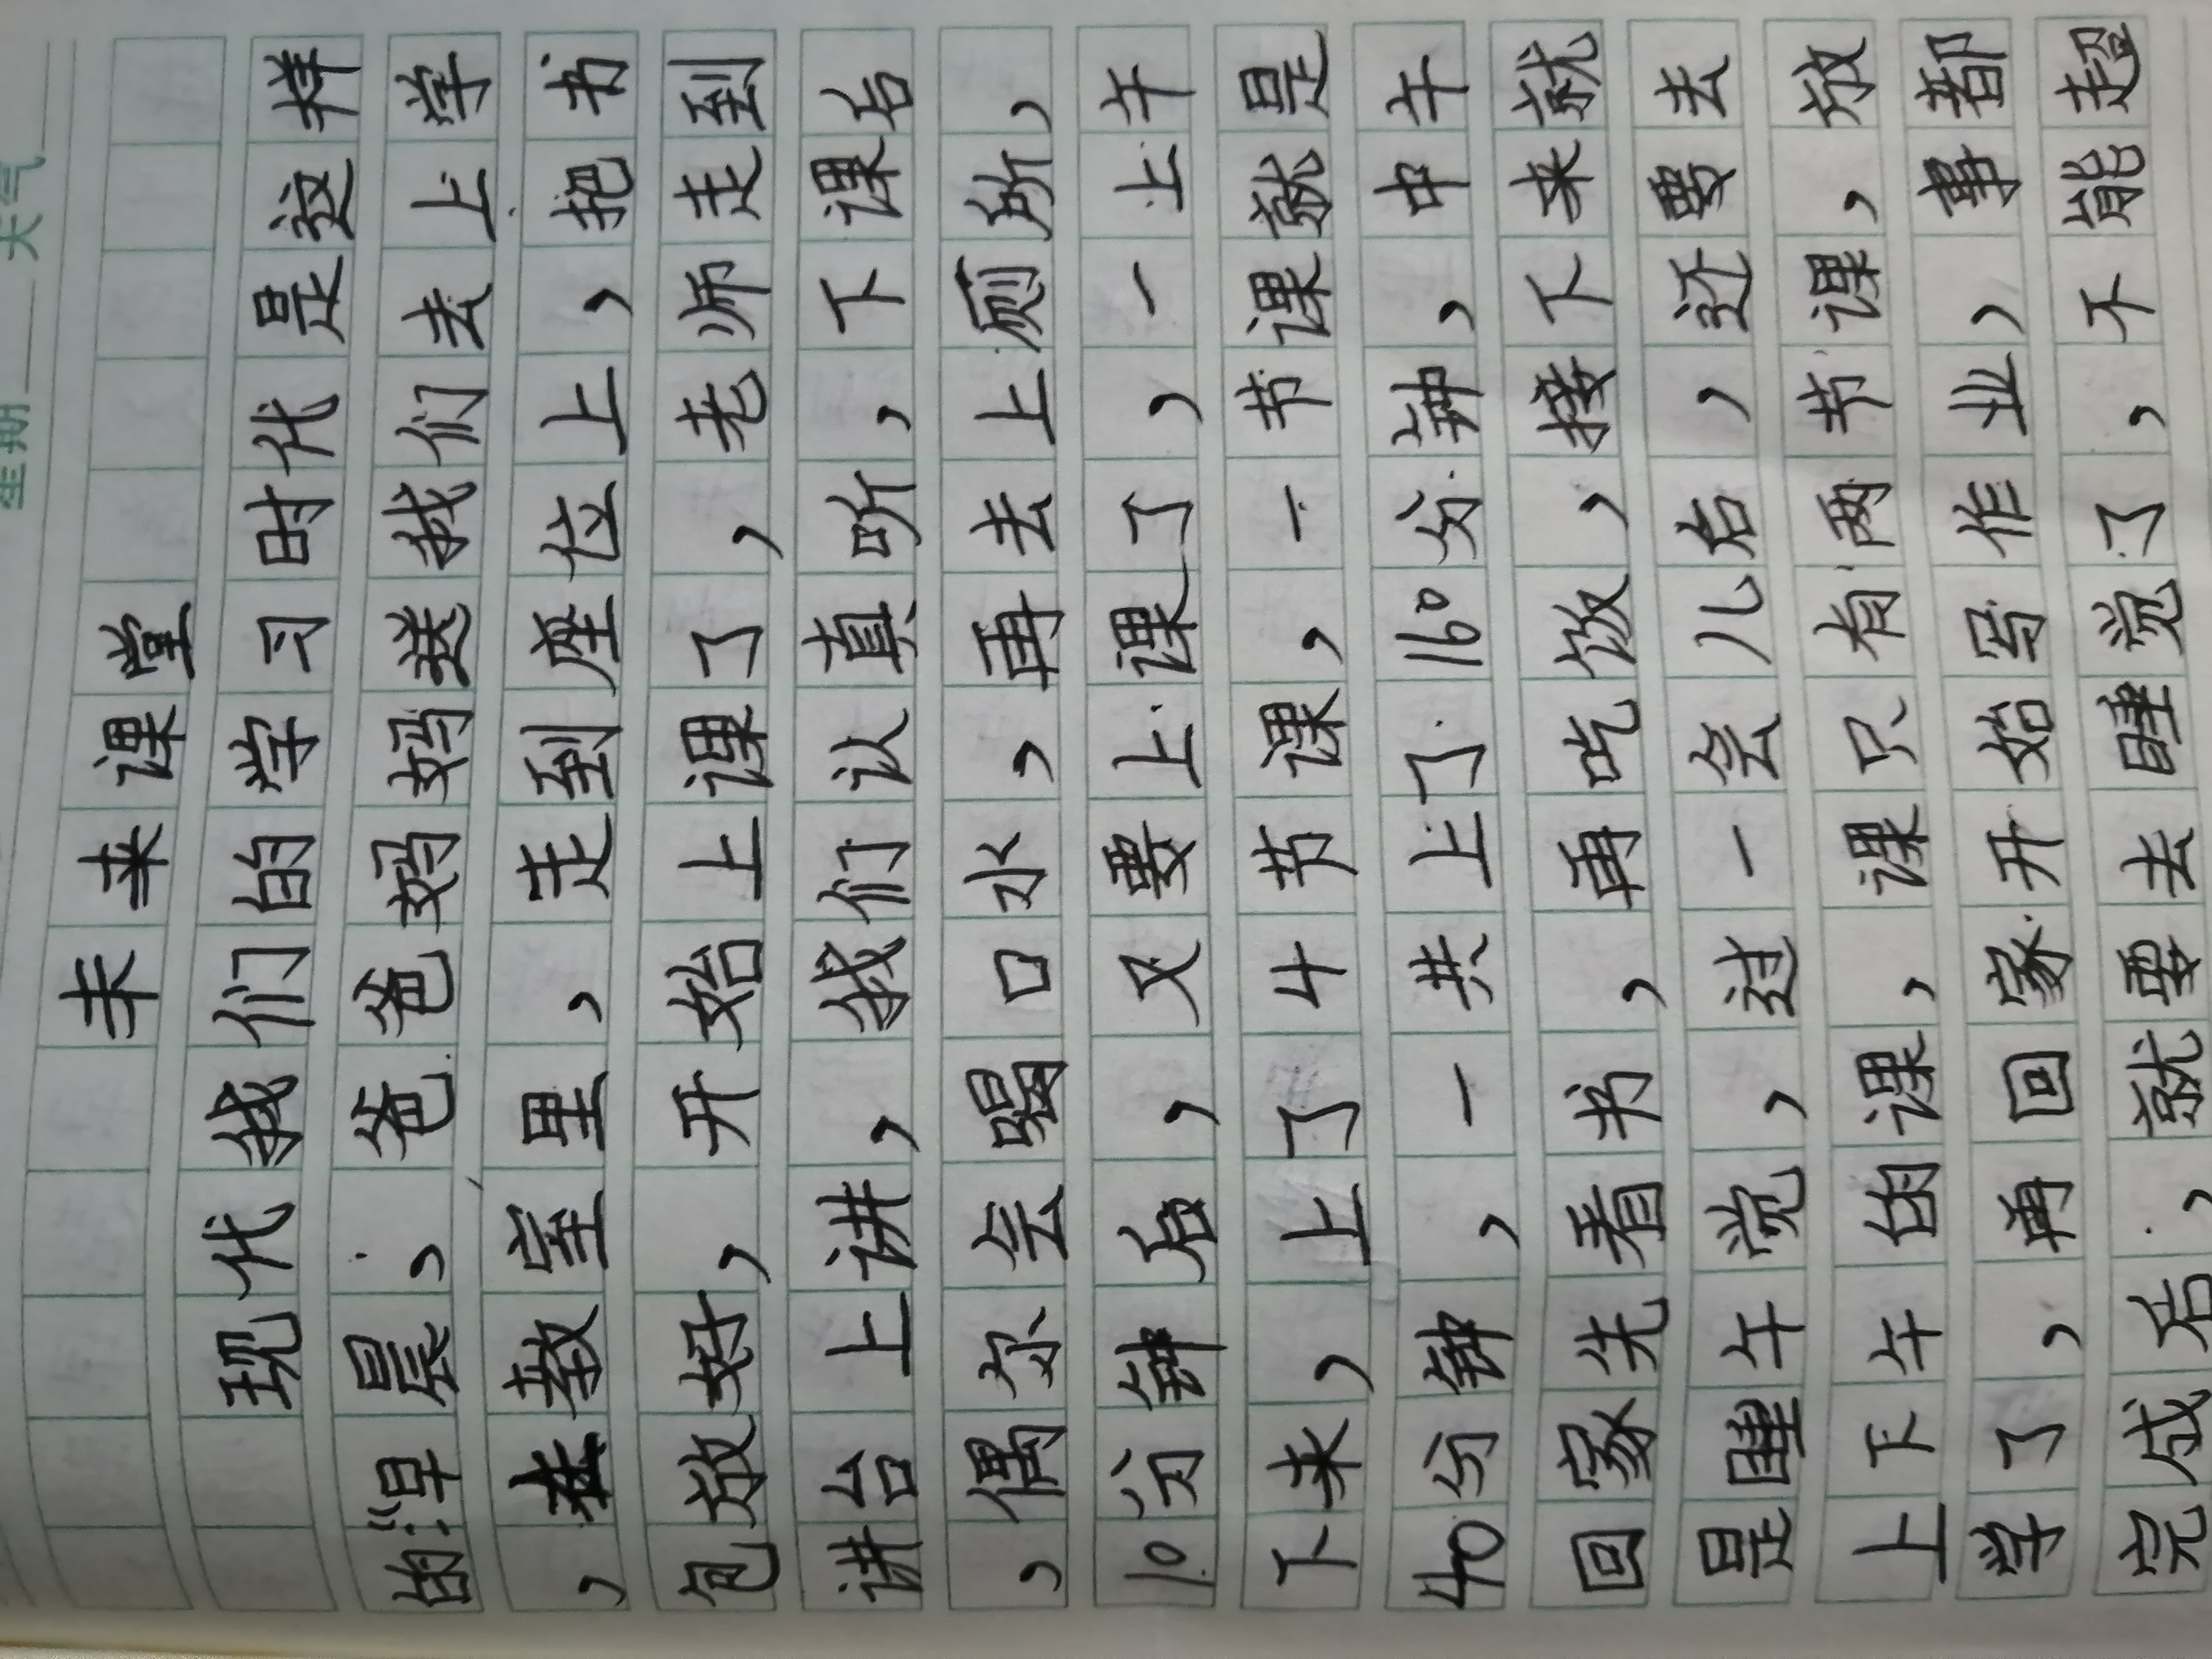 星期 天气
未来课堂
现代我们的学习时代是这样
的：“早晨，爸爸妈妈送我们去上学
，教室里，走到座位上，把书
包放好，开始上课了，老师走到
讲台上讲，我们认真听，下课后
，偶尔会喝口水，再去上厕所，
10分钟后，又要上课了，一上午
下来，上了4节课，一节课就是
40分钟，一共上了160分钟，中午
回家先看书，再吃饭，接下来就
是睡午觉，过一会儿后，还要去
上下午的课，课只有两节课，放
学了，再回家开始写作业，事都
完成后，就要去睡觉了，不能超